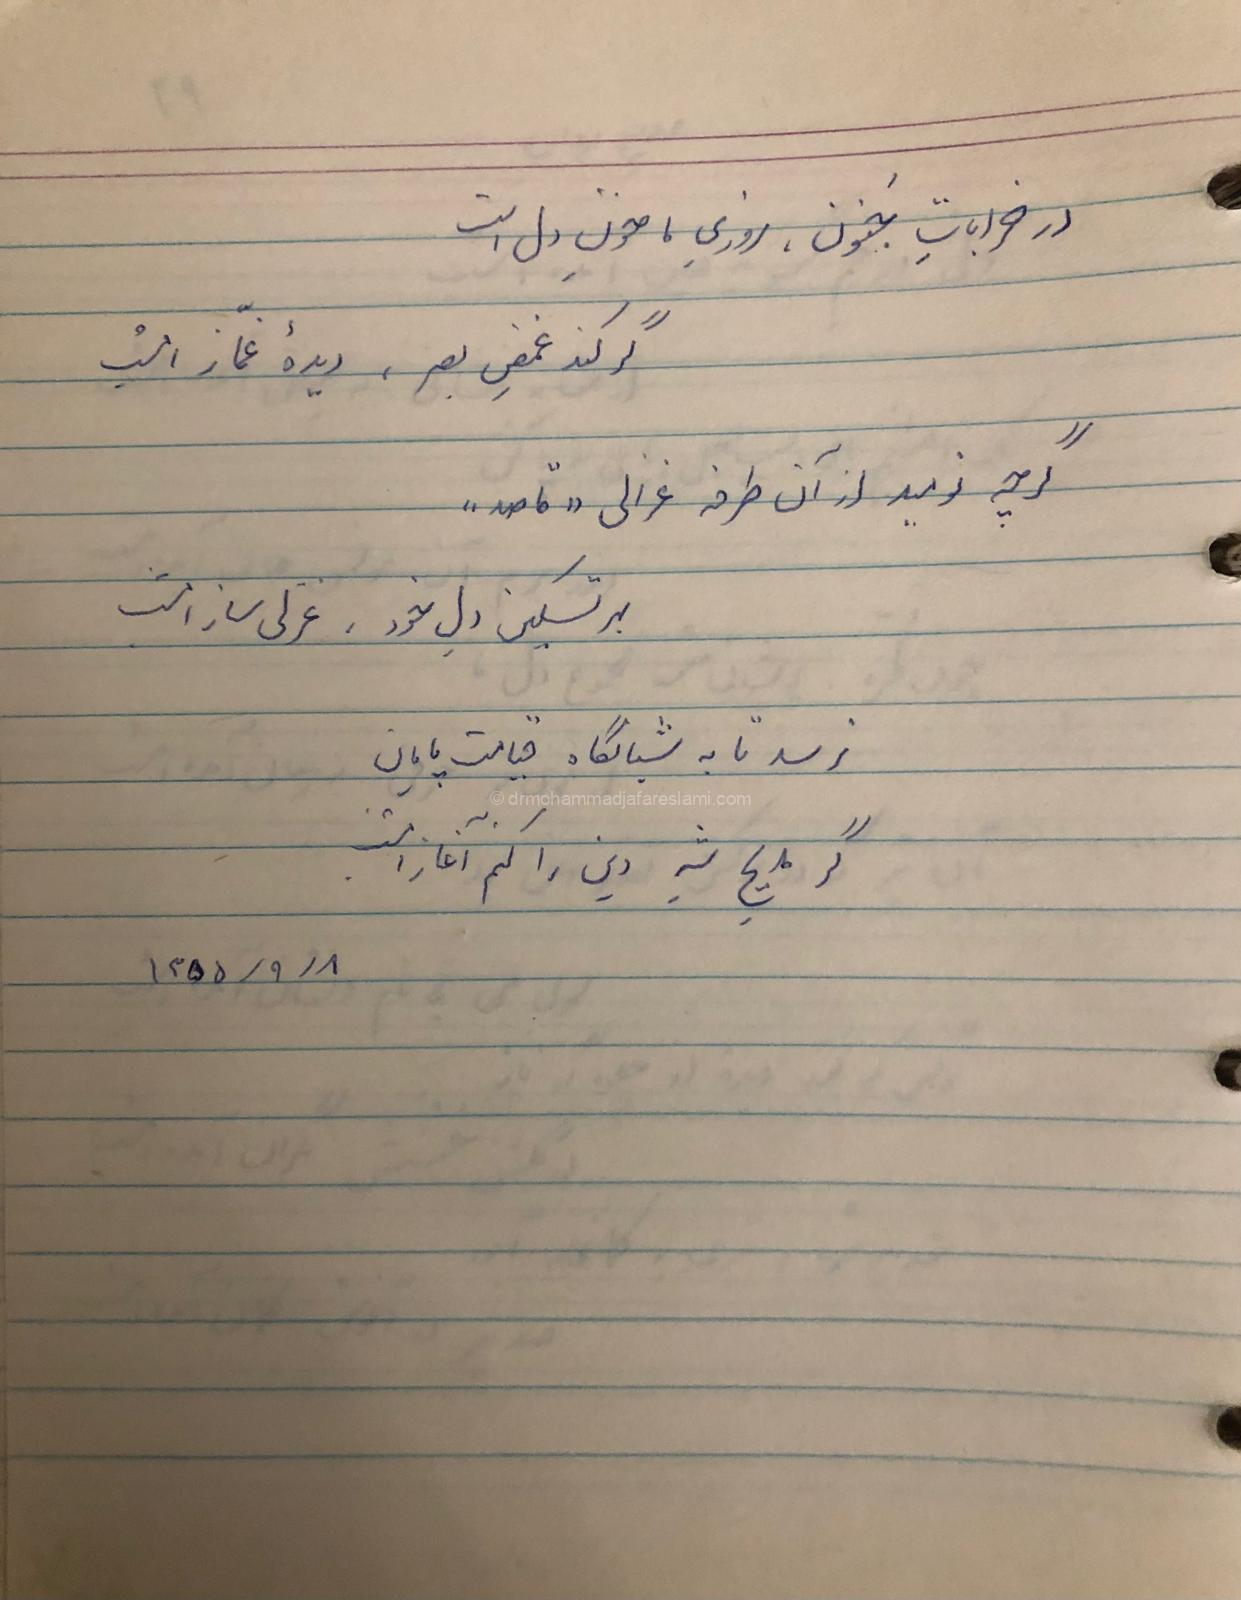 در خراباتِ جُنون، روزیِ ما خونِ دل است
گر کند غمضِ بصر، دیدهٔ غمّاز امشب
گرچه نومید از آن طرفه غزالی «قاصد»
بهر تسکین دلِ خود، غزلی ساز امشب
نرسد تا به شبانگاه قیامت پایان
گر مدیحِ شهِ دین را کنم آغاز امشب
۱۳۵۵/۹/۸
© drmohammadjafareslami.com